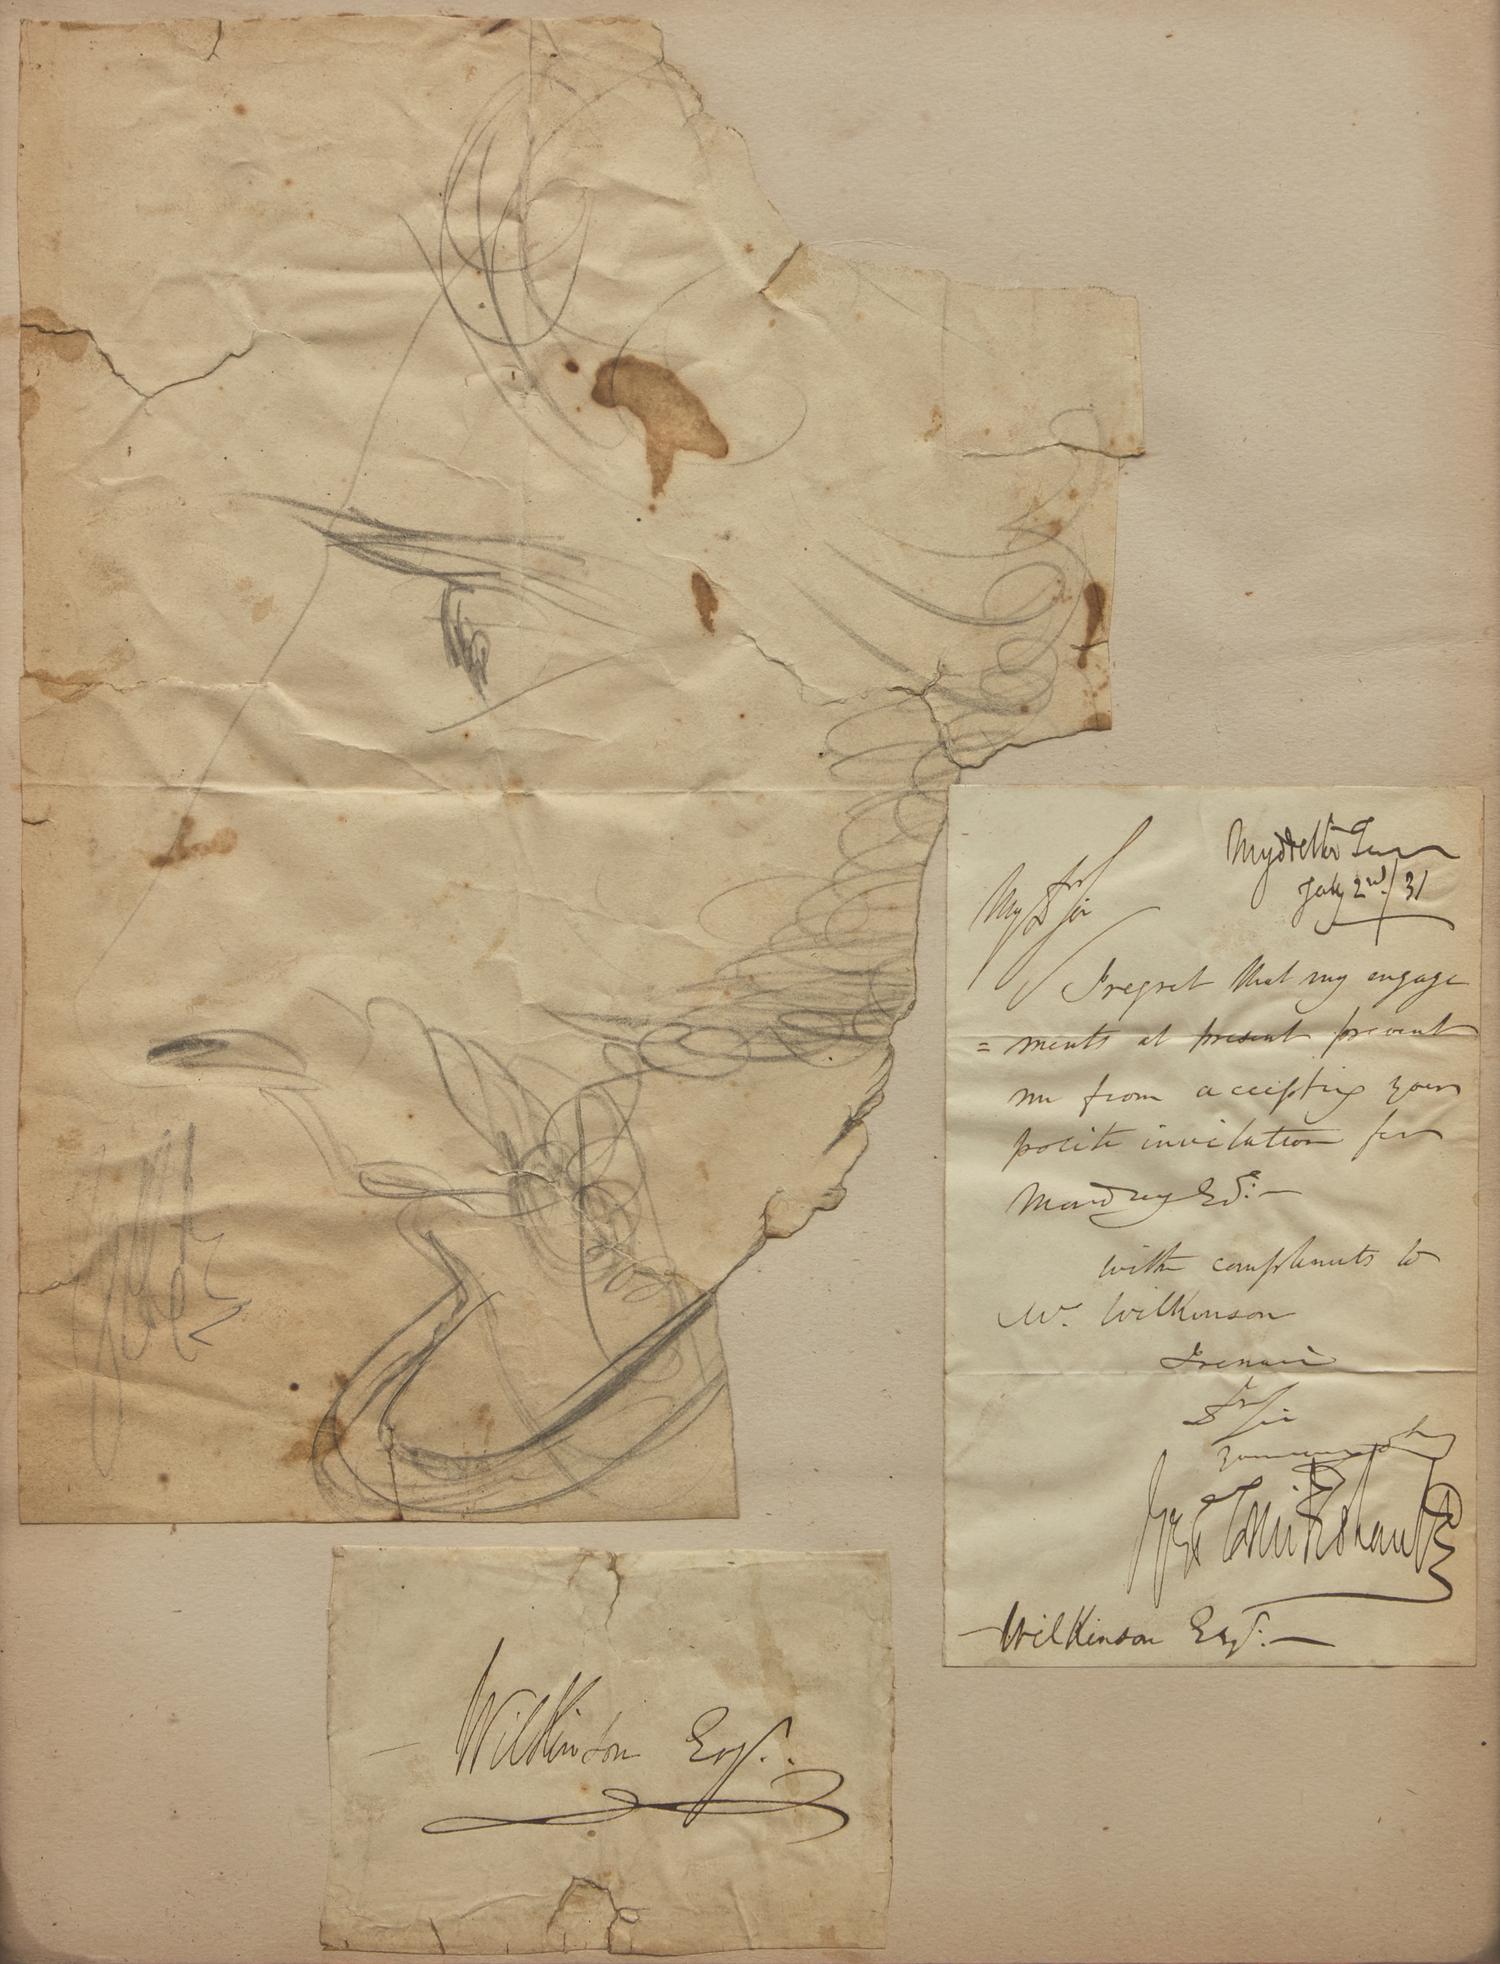 Myddelton Terr
July 2nd/31
My Dr Sir
I regret that my engage
= ments at present prevent
me from accepting your
polite invitation for
Monday Ed:—
with compliments to
Mrs. Wilkinson
I remain
Dr Sir
yours
Geo Cruikshank
— Wilkinson Esqr.—
— Wilkinson Esqr.